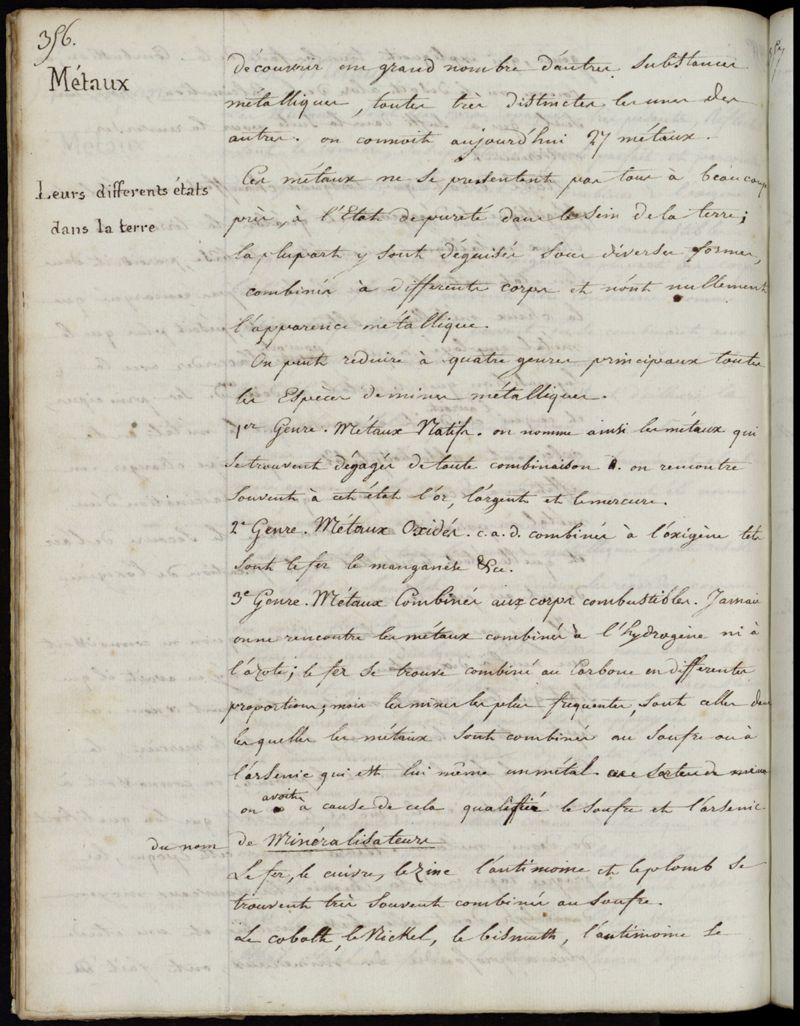 356.
Métaux
découvrir un grand nombre d'autres substances
métalliques, toutes très distinctes les unes des
autres. on connoit aujourd'hui 27 métaux.
Leurs differents états
dans la terre
Ces métaux ne se presentent pas tous a beaucoup
près, à l'Etat de pureté dans le Sein de la terre;
la plupart y sont déguisés sous diverses formes,
combinés à differents corps et n'ont nullement
l'apparence métallique.
On peut réduire à quatre genres principaux toutes
les Espèces de mines métalliques.
1er Genre. Métaux Natifs. on nomme ainsi les métaux qui
se trouvent dégagés de toute combinaison. on rencontre
souvent à cet état l'or, l'argent et le mercure.
2e Genre. Métaux Oxidés. c.a.d. combinés à l'oxigène tels
sont le fer le manganèse &ce.
3e Genre. Métaux Combinés aux corps combustibles. Jamais
on ne rencontre les métaux combinés à l'hydrogène ni à
l'azote; le fer se trouve combiné au Carbone en differentes
proportions; mais les mines les plus fréquentes, sont celles dans
lesquelles les métaux sont combinés au Soufre ou à
l'arsenic qui est lui même un métal. ces sortes de mines
on avoit à cause de cela qualifié le soufre et l'arsenic
du nom de Minéralisateurs
Le fer, le cuivre, le zinc l'antimoine et le plomb se
trouvent très souvent combinés au soufre.
Le cobalt, le Nickel, le bismuth, l'antimoine se